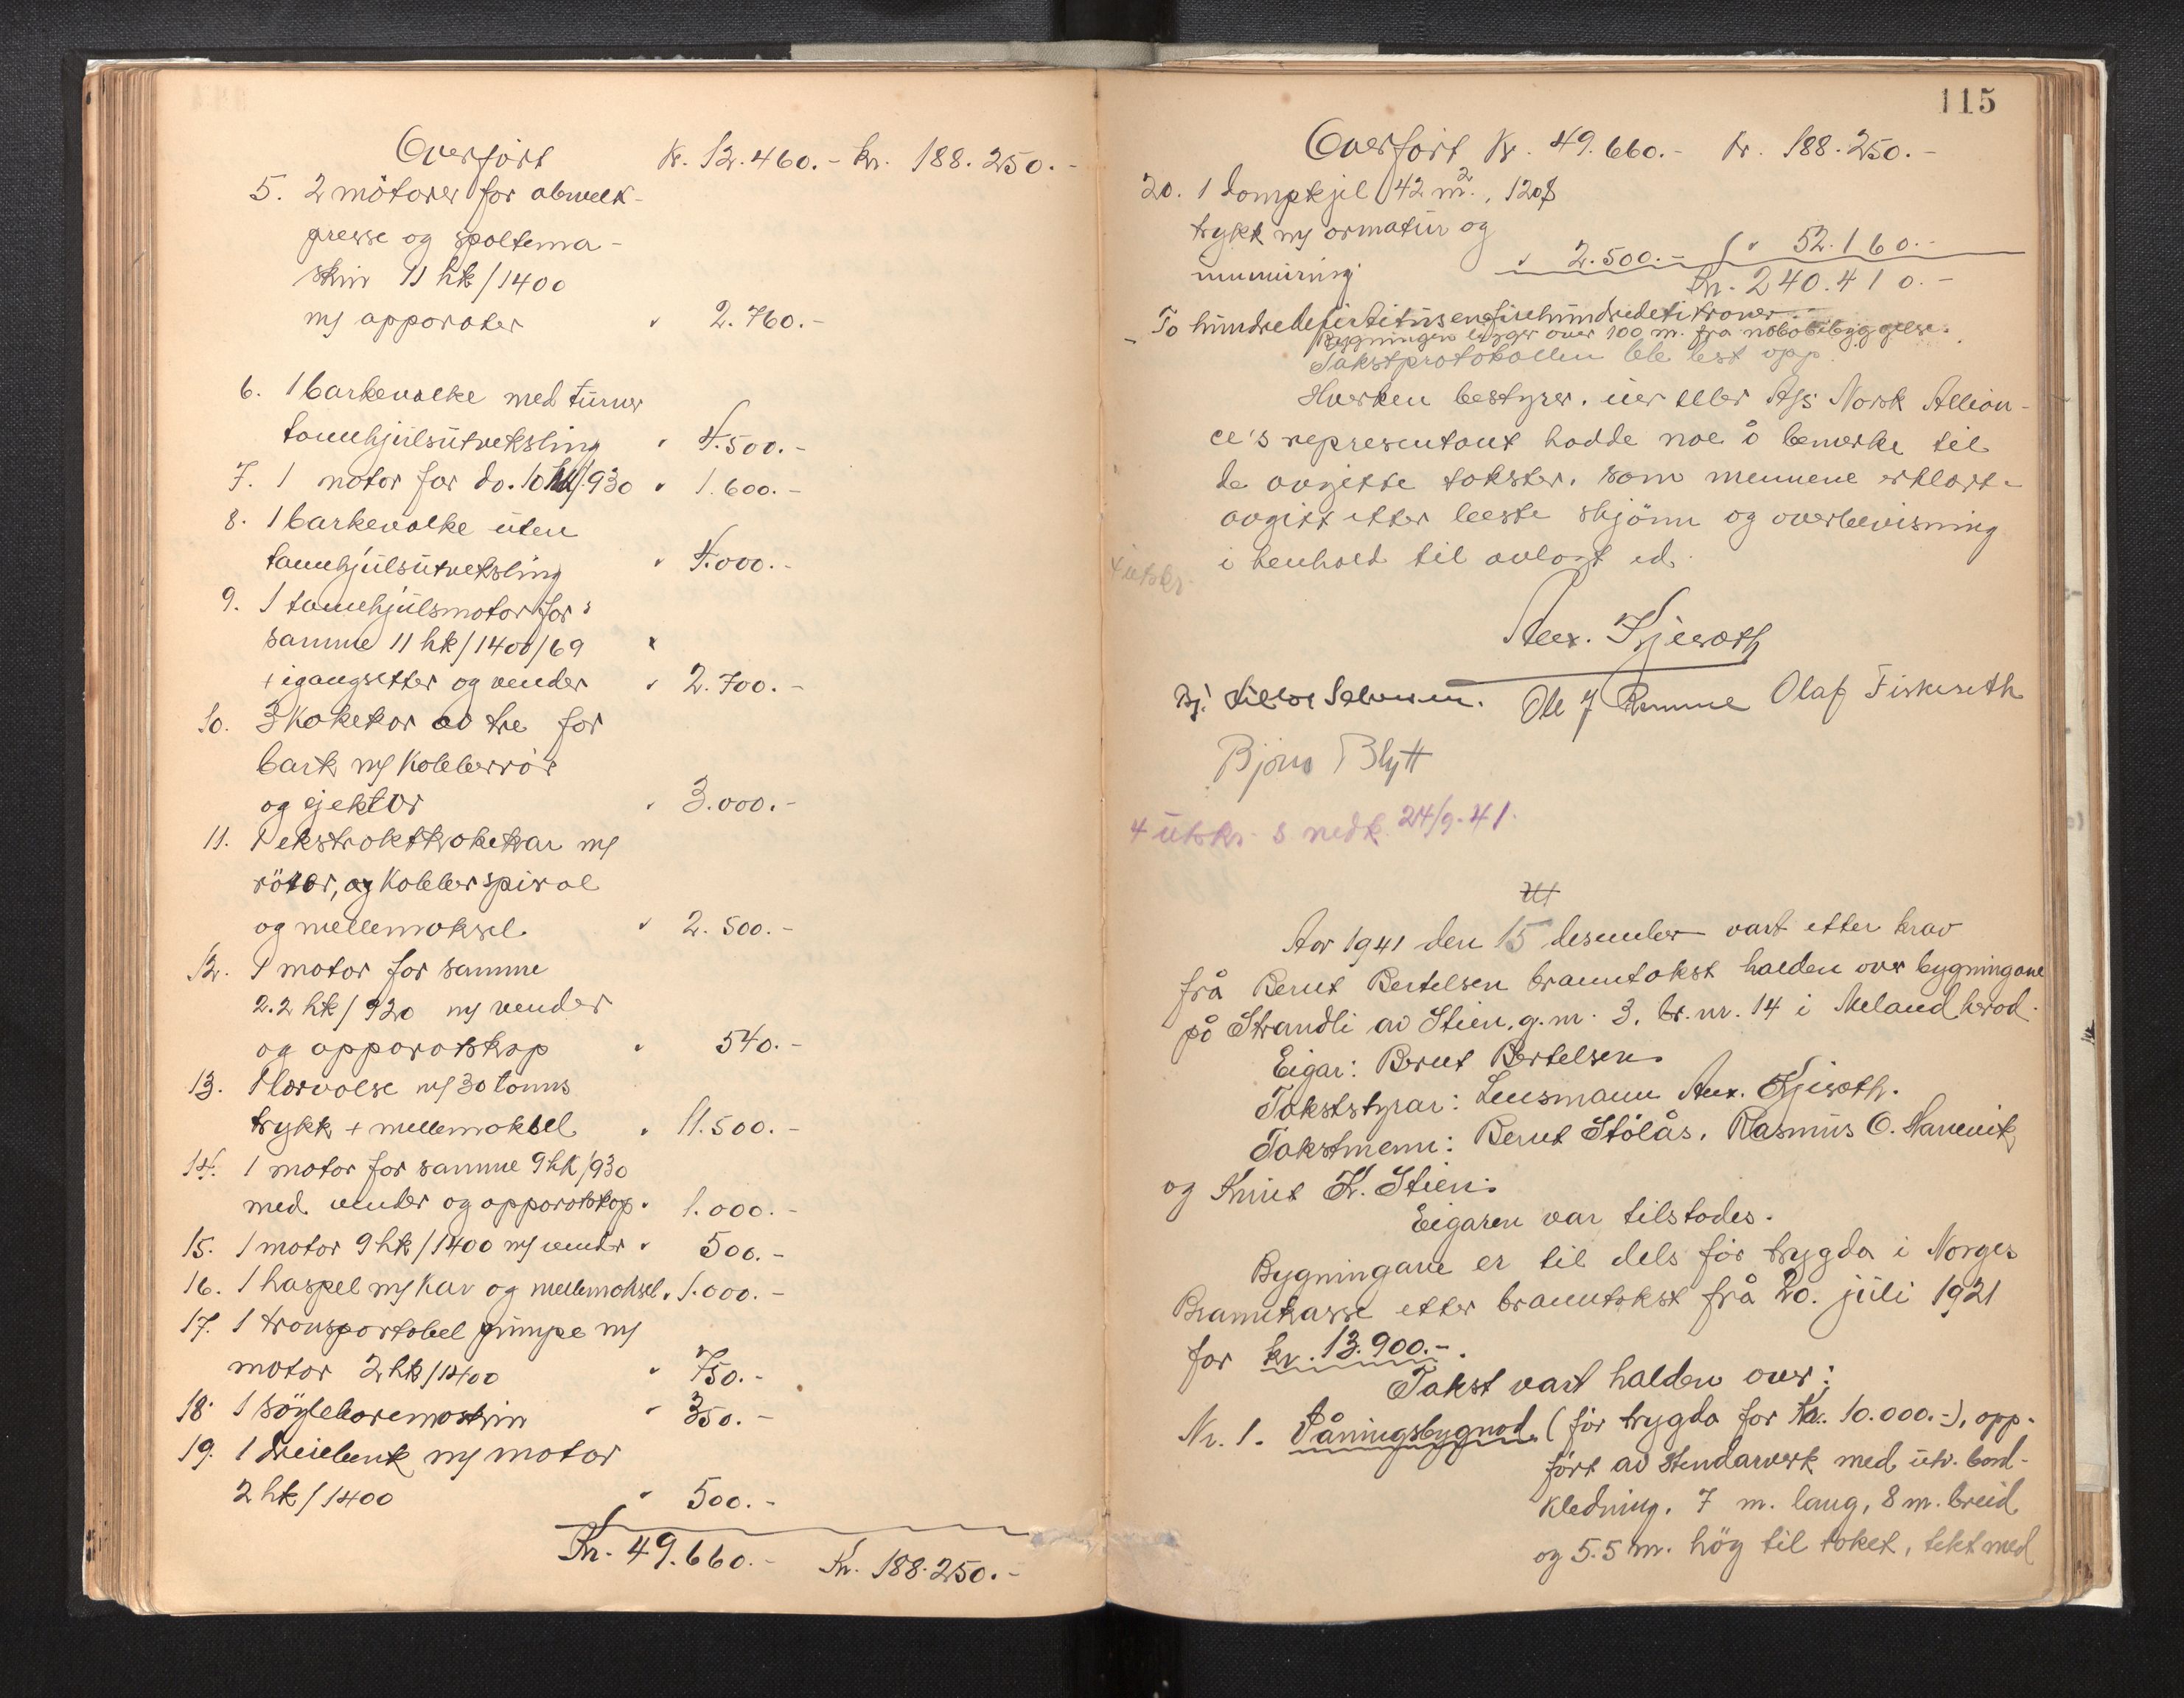 Overført Kr. 12.460.- kr. 188.250.-
5. 2 motorer for abwelk-
presse og spaltema-
skin 11 hk/1400
m/ apparater " 2.760.-
6. 1 barkevalke med turner
tannhjulsutveksling " 4.500.-
7. 1 motor for do. 10 hk/930 " 1.600.-
8. 1 barkevalke uten
tannhjulsutveksling " 4.000.-
9. 1 tannhjulsmotor for
samme 11 hk/1400/69
+ igangsetter og vender " 2.700.-
10. 3 Kokekar av tre for
bark m/ Kobberrör
og ejektor " 3.000.-
11. 1 ekstraktkokekar m/
rörer, og Kobberspiral
og mellemaksel " 2.500.-
12. 1 motor for samme
2.2 hk/920 m/ vender
og apparatskap " 540.-
13. 1 lærvalse m/ 30 tonns
trykk + mellemaksel " 11.500.-
14. 1 motor for samme 9 hk/930
med vender og apparatskap " 1.000.-
15. 1 motor 9 hk/1400 m/ vender " 500.-
16. 1 haspel m/ Kar og mellemaksel " 1.000.-
17. 1 transportabel pumpe m/
motor 2 hk/1400 " 750.-
18. 1 söyleboremaskin " 350.-
19. 1 dreiebenk m/ motor
2 hk/1400 " 500.-
Kr. 49.660.- Kr. 188.250.-
115
Overført Kr. 49.660.- Kr. 188.250.-
20. 1 dampkjel 42 m². , 120
trykk m/ armatur og
innmuring " 2.500.- " 52.160.-
Kr. 240.410.-
To hundredeførtitusenfirehundredeti kroner.
Bygningen ligger over 100 m. fra nabobebyggelse.
Takstprotokollen ble lest opp.
Hverken bestyrer. eller A/S Norsk Allian-
ce's representant hadde noe å bemerke til
de avgitte takster, som mennene erklært-
avgitt etter beste skjönn og overbevisning
i henhold til avlagt ed.
4 utskr.
Alex. Kjerath
Ole J Romme Olaf Fiskeseth
Bjørn Blytt
4 utskr. s nedk. 24/9-41.
Aar 1941 den 15 desember vart etter krav
frå Bernt Bertelsen branntakst halden over bygningane
på Strandli av Stien, g.nr. 3, br.nr. 14 i Meland herad.
Eigar: Bernt Bertelsen.
Takststyrar: Lensmann Alex. Kjerath.
Takstmenn: Bernt Stölås, Rasmus O. Hanevik
og Knut K. Stien.
Eigaren var tilstades.
Bygningane er til dels för trygda i Norges
Brannkasse etter branntakst frå 20. juli 1921
for kr. 13.900.-.
Takst vart halden over:
Nr. 1. Våningsbygnad (för trygda for Kr. 10.000.-), opp-
fört av stendarverk med utv. bord-
kledning, 7 m. lang, 8 m. breid
og 5.5 m. hög til taket, tekt med